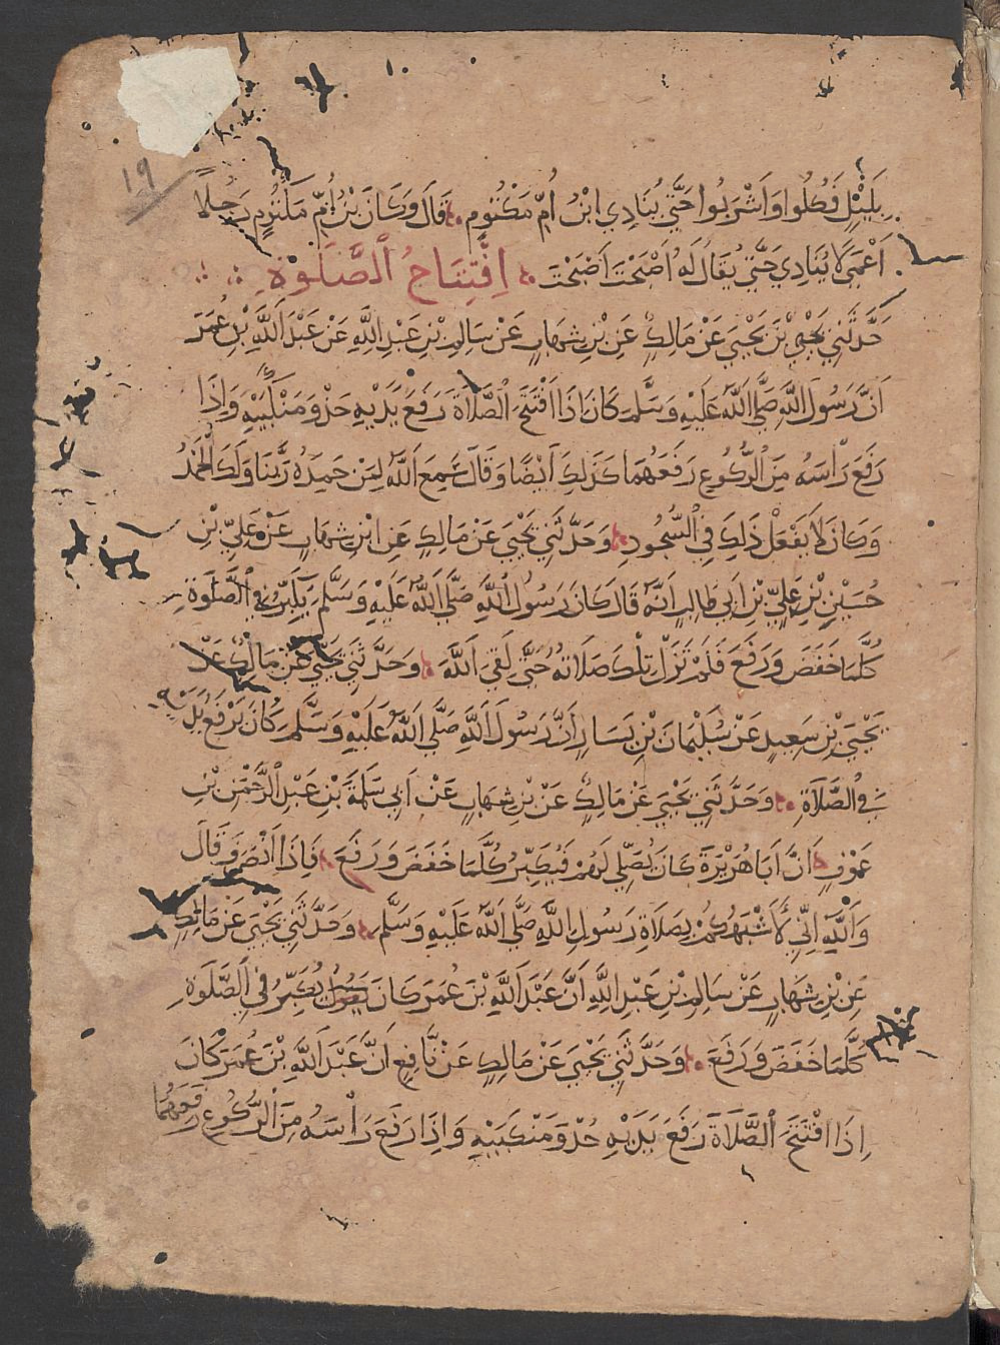 ١٩
بِلَيْلٍ فَكُلُوا وَاَشْرَبُوا حَتَّي يُنَادِي ابْنُ اُمّ مَكْتُومٍ قَالَ وَكَانَ بْنُ اُمّ مَكْتُومٍ رَجُلاً
اَعْمَي لَا يُنَادِي حَتَّي يُقَالَ لَهُ اَصْبَحْتَ اَصْبَحْتَ اِفْتِتَاحُ الصَّلَوٰةِ
حَدَّثَنِي يَحْيَي بْنُ يَحْيَي عَنْ مَالِكٍ عَنِ بْنِ شِهَابٍ عَنْ سَالِمِ بْنِ عَبْدِ اللَّهِ عَنْ عَبْدِ اللَّهِ بْنِ عُمَرَ
اَنَّ رَسُولَ اللَّهِ صَلَّي اللَّهُ عَلَيْهِ وَسَلَّمَ كَانَ اِذَا افْتَتَحَ الصَّلَاةَ رَفَعَ يَدَيْهِ حَذْوَ مَنْكَبَيْهِ وَاِذَا
رَفَعَ رَاْسَهُ مِنَ الرُّكُوعِ رَفَعَهُمَا كَذَلِكَ اَيْضًا وَقَالَ سَمِعَ اللَّهُ لِمَنْ حَمِدَهُ رَبَّنَا وَلَكَ الْحَمْدُ
وَكَانَ لَا يَفْعَلُ ذَلِكَ فِي السُّجُودِ وَحَدَّثَنِي يَحْيَي عَنْ مَالِكٍ عَنِ ابْنِ شِهَابٍ عَنْ عَلِيّ بْنِ
حُسَيْنِ بْنِ عَلِيّ بْنِ اَبِي طَالِبٍ اَنَّهُ قَالَ كَانَ رَسُولُ اللَّهِ صَلَّي اللَّهُ عَلَيْهِ وَسَلَّمَ يُكَبِّرُ فِي الصَّلَوةِ
كُلَّمَا خَفَضَ وَرَفَعَ فَلَمْ تَزَلْ تِلْكَ صَلَاتُهُ حَتَّي لَقِيَ اللَّهَ وَحَدَّثَنِي يَحْيَي عَنْ مَالِكٍ عَنْ
يَحْيَي بْنِ سَعِيدٍ عَنْ سُلَيْمَانَ بْنِ يَسَارٍ اَنَّ رَسُولَ اللَّهِ صَلَّي اللَّهُ عَلَيْهِ وَسَلَّمَ كَانَ يَرْفَعُ يَدَيْهِ
فِي الصَّلَاةِ وَحَدَّثَنِي يَحْيَي عَنْ مَالِكٍ عَنْ بْنِ شِهَابٍ عَنْ اَبِي سَلَمَةَ بْنِ عَبْدِ الرَّحْمٰنِ بْنِ
عَوْفٍ اَنَّ اَبَا هُرَيْرَةَ كَانَ يُصَلِّي لَهُمْ فَيُكَبِّرُ كُلَّمَا خَفَضَ وَرَفَعَ فَاِذَا انْصَرَفَ قَالَ
وَاللَّهِ اِنِّي لَاَشْبَهُكُمْ بِصَلَاةِ رَسُولِ اللَّهِ صَلَّي اللَّهُ عَلَيْهِ وَسَلَّمَ وَحَدَّثَنِي يَحْيَي عَنْ مَالِكٍ
عَنِ بْنِ شِهَابٍ عَنْ سَالِمِ بْنِ عَبْدِ اللَّهِ اَنَّ عَبْدَ اللَّهِ بْنَ عُمَرَ كَانَ يُكَبِّرُ فِي الصَّلَوةِ
كُلَّمَا خَفَضَ وَرَفَعَ وَحَدَّثَنِي يَحْيَي عَنْ مَالِكٍ عَنْ نَّافِعٍ اَنَّ عَبْدَ اللَّهِ بْنَ عُمَرَ كَانَ
اِذَا افْتَتَحَ الصَّلَاةَ رَفَعَ يَدَيْهِ حَذْوَ مَنْكَبَيْهِ وَاِذَا رَفَعَ رَاْسَهُ مِنَ الرُّكُوعِ رَفَعَهُمَا